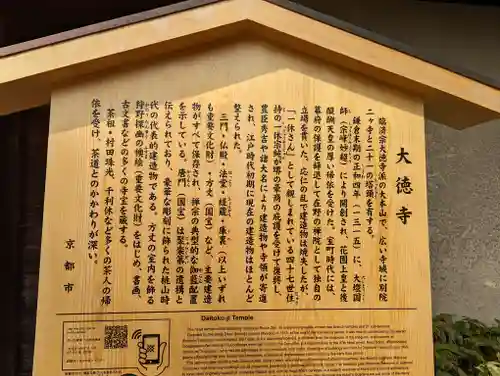 大徳寺
臨済宗大徳寺派の大本山で、広い寺域に別院
二ヶ寺と二十一の塔頭を有する。
鎌倉末期の正和四年（一三一五）に、大燈国
師（宗峰妙超）により開創され、花園上皇と後
醍醐天皇の厚い帰依を受けた。室町時代には、
幕府の保護を辞退して在野の禅院として独自の
立場を貫いた。応仁の乱で建造物は焼失したが、
「一休さん」として親しまれている四十七世住
持の一休宗純が堺の豪商の庇護を受けて復興し、
豊臣秀吉や諸大名により建造物や寺領が寄進
され、江戸時代初期に現在の建造物はほとんど
整えられた。
三門・仏殿・法堂・経蔵・庫裏（以上いずれ
も重要文化財）、方丈（国宝）など、主要建造
物がすべて保存され、禅宗の典型的な伽藍配置
を示している。唐門（国宝）は聚楽第の遺構と
伝えられており、豪壮な彫刻に飾られた桃山時
代の代表的建造物である。方丈の室内を飾る
狩野探幽の襖絵（重要文化財）をはじめ、書画、
古文書などの多くの寺宝を蔵する。
茶祖・村田珠光、千利休など多くの茶人の帰
依を受け、茶道とのかかわりが深い。
京都市
Daitoku-ji Temple